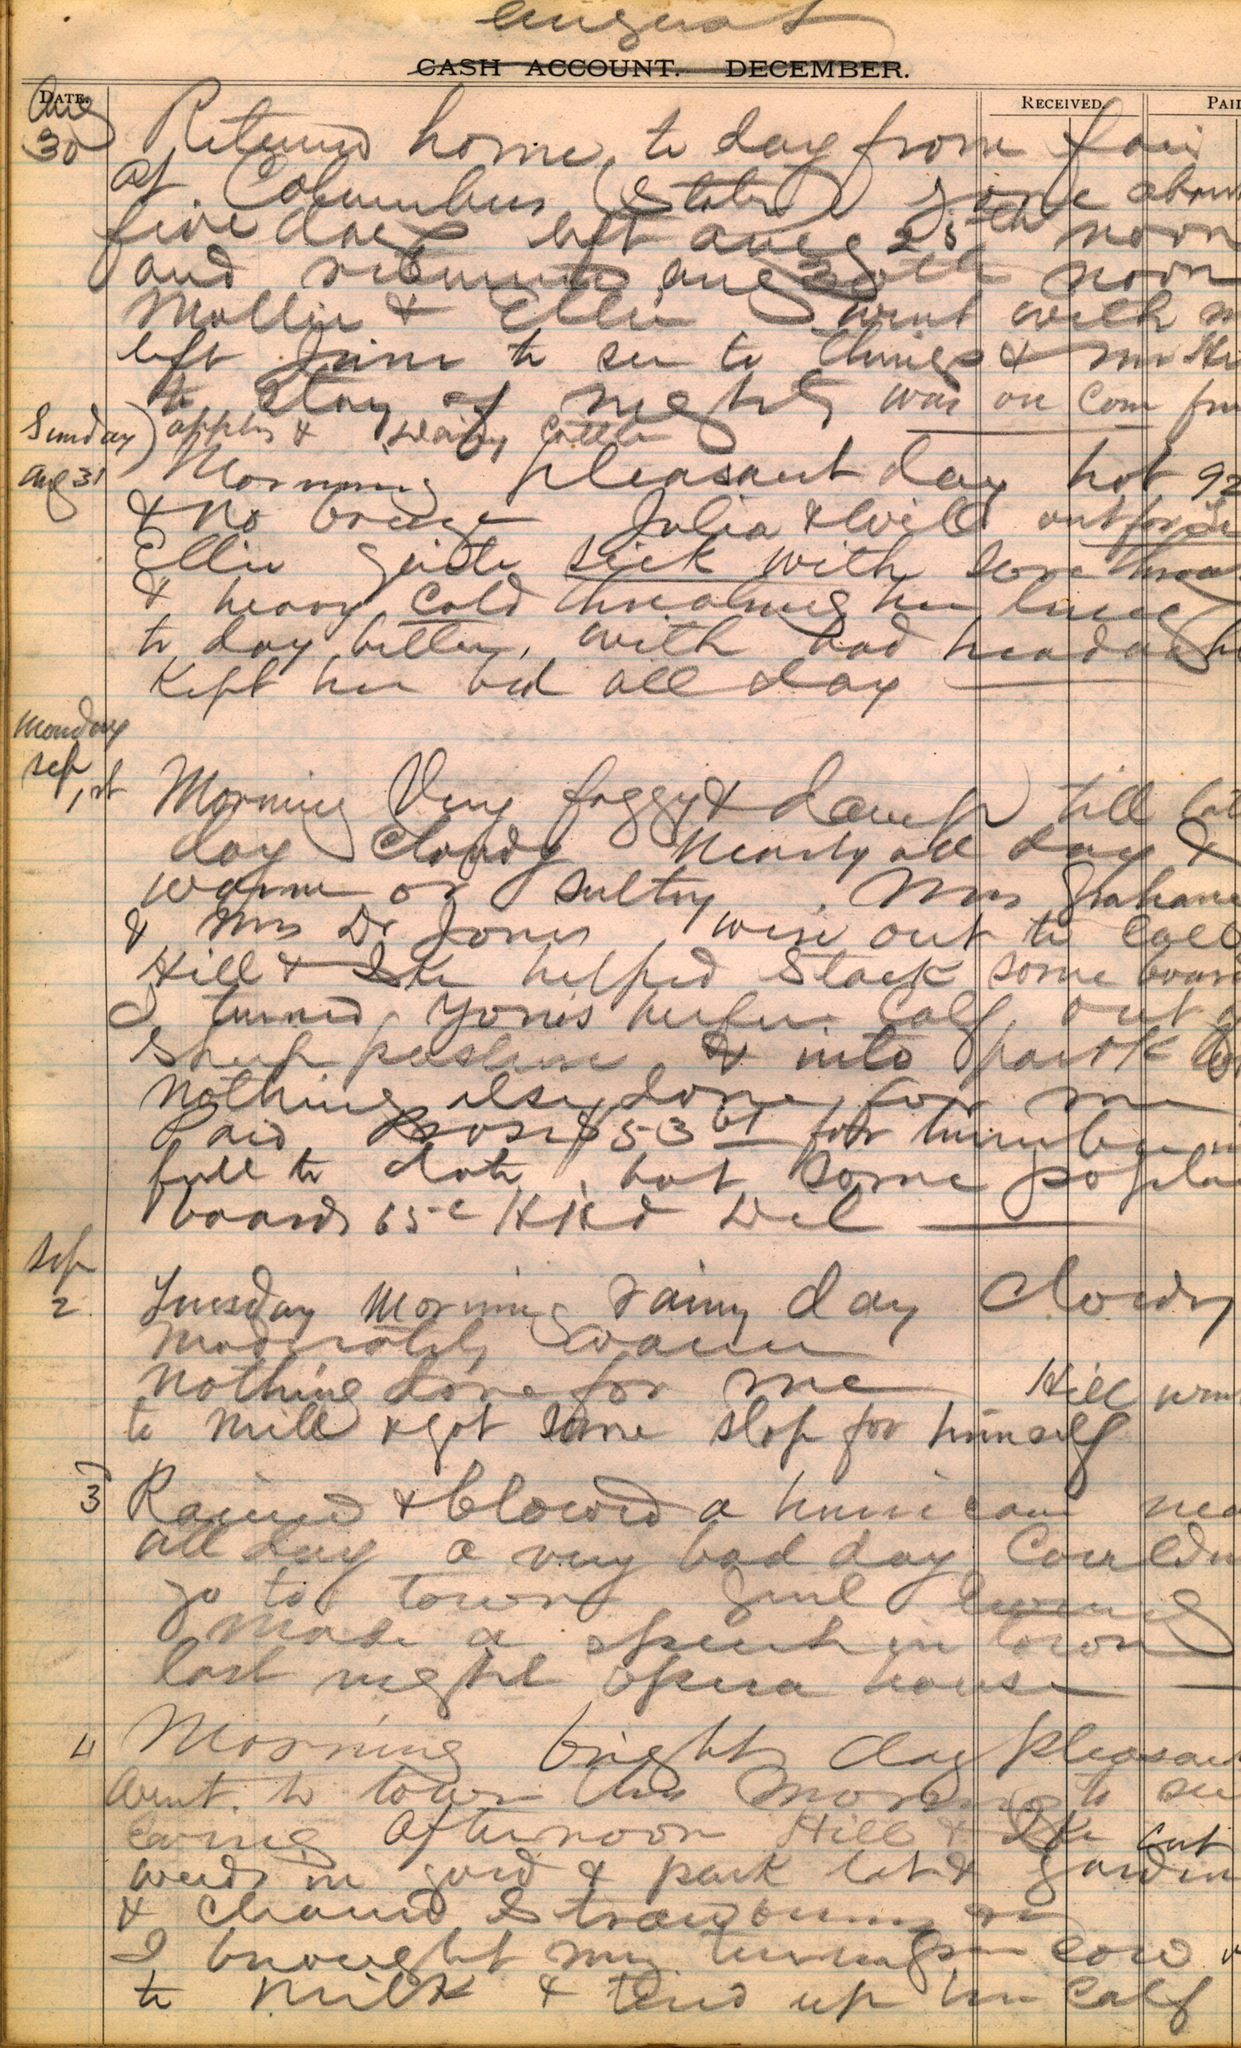 August
CASH ACCOUNT. DECEMBER.
DATE. RECEIVED. PAID
Aug 30 Returned home to day from fair
at Columbus (State) gone about
five days left Aug 25th noon
and returned Aug 30th noon
Mollie & Ellie went with m
left Jim to see to things & Mr
to stay of nights was on Com
apples & Dairy Cattle
Sunday Aug 31 Morning pleasant day hot 92
& no breeze Julia & Will out for
Ellie quite sick with sore throat
& heavy cold threatning her lungs
to day better, with bad headache
Kept her bed all day
Monday Sep 1st Morning Very foggy & damp till late
day Cloudy Nearly all day &
warm or sultry. Mrs Graham
& Mrs Dr Jones were out to call
Hill & Ike helped Stack some boards
I turned heifer Calf out of
Sheep pasture & into park
Nothing else done for me
Paid $53 for lumber in
full to date, but some poplar
boards 65c
Sep 2 Tuesday Morning rainy day Cloudy
Moderately warm
Nothing done for me Hill went
to Mill & got some slop for himself
3 Rained & blowed a hurricane nea
all day a very bad day Couldn
go to town Genl Ewing
Made a speech in town
last night opera house
4 Morning bright day pleasant
Went to town this Morning to see
Ewing Afternoon Hill & Ike cut
weeds in yard & park lot & garden
& cleaned Strawberry
I brought my cow
to Milk & tied up her Calf